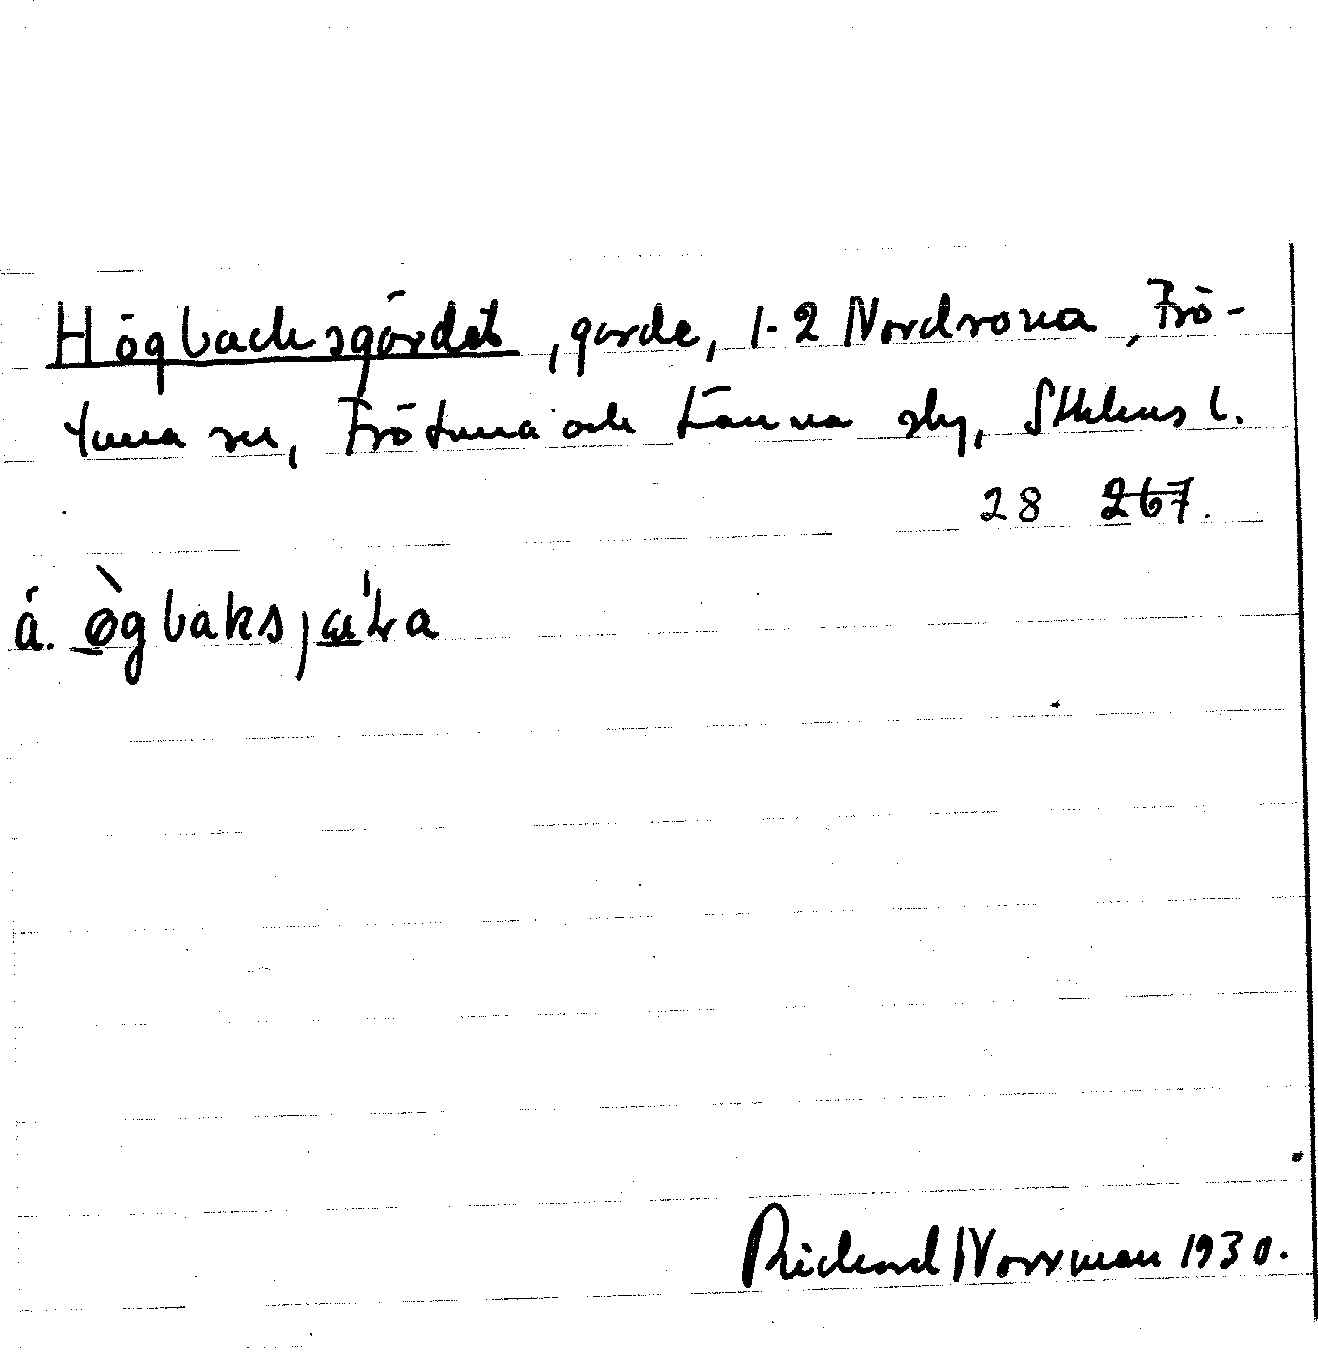 Högbacksgärdet, gärde, 1-2 Nordrona, Frö-
tuna sn, Frötuna och Länna skg, Sthlms l.
28 267.
å. ògbaksj
Richard Norrman 1930.